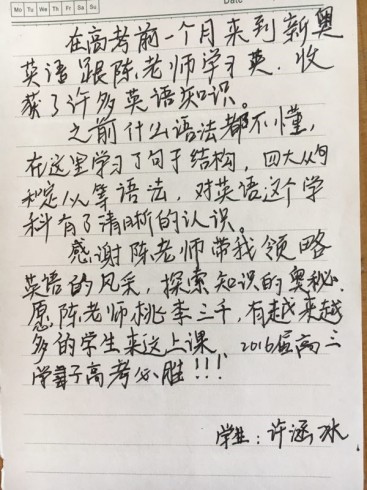 Mo Tu We Th Fr Sa Su
Date
在高考前一个月来到新奥
英语跟陈老师学习英.收
获了许多英语知识。
之前什么语法都不懂,
在这里学习了句子结构,四大从句
和定从等语法,对英语这个学
科有了清晰的认识。
感谢陈老师带我领略
英语的风采,探索知识的奥秘.
愿陈老师桃李三千,有越来越
多的学生来这上课、2016届高三
学子高考必胜!!!
学生:许涵冰